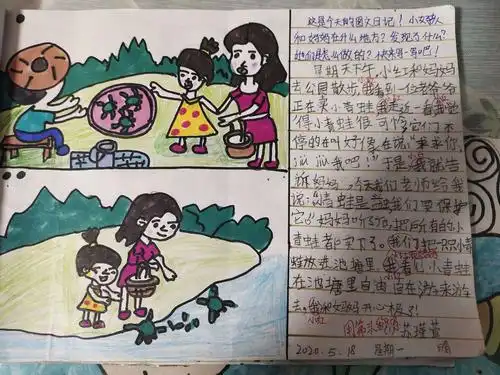 这是个天的图文日记！小女孩
和妈妈在什么地方？发现了什么？
她们是怎么做的？快来写一写吧！
星期天下午，小红和妈妈
去公园散步，看到一位老爷爷
正在卖小青蛙，我走近一看，我觉
得小青蛙很可怜，它们不
停的在叫，好像在说："来来你，
jiù jiù 我吧！"于是，我就告
诉妈妈，今天我们老师给我
说：青蛙是益虫，我们要保护
它。妈妈听了后，把所有的小
青蛙者买下了。我们把一只只小青
蛙放进池塘里，我看见小青蛙
在池塘里自由自在游来游
去，我和妈妈开心极了！
用第三人称
苏瑾萱
2020.5.18 星期一 晴